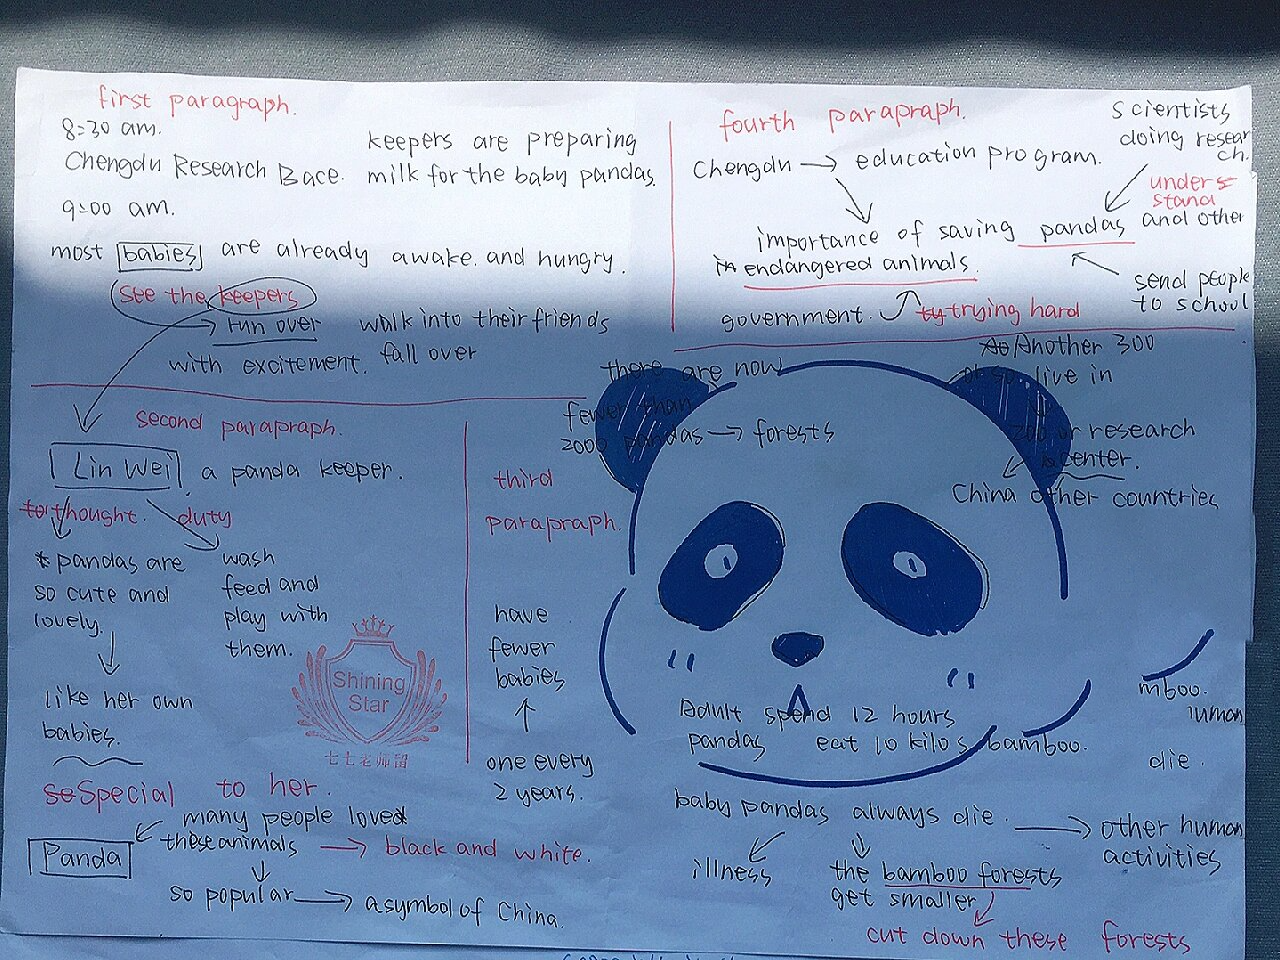 first paragraph.
8:30 am.
Chengdu Research Bace.
9:00 am.
keepers are preparing
milk for the baby pandas.
most babies are already awake and hungry.
See the keepers
run over walk into their friends
with excitement. fall over
second parapraph.
Lin Wei a panda keeper.
to thought. duty
* pandas are
so cute and
lovely.
wash
feed and
play with
them.
like her own
babies.
se Special to her.
many people loved
these animals → black and white.
Panda
so popular → a symbol of China.
Shining
Star
七七老师留
third
parapraph.
there are now
fewer than
2000 pandas → forests
Another 300
or so live in
zoo or research
center.
China other countries
have
fewer
babies
one every
2 years.
Adult spend 12 hours
pandas eat 10 kilos bamboo.
baby pandas always die. → other human
activities
illness
the bamboo forests
get smaller
cut down these forests
mboo.
die.
fourth parapraph.
Chengdu → education program.
importance of saving pandas
in endangered animals.
government. ty trying hard
Scientists
doing resear
ch.
under-
stand
and other
send people
to school